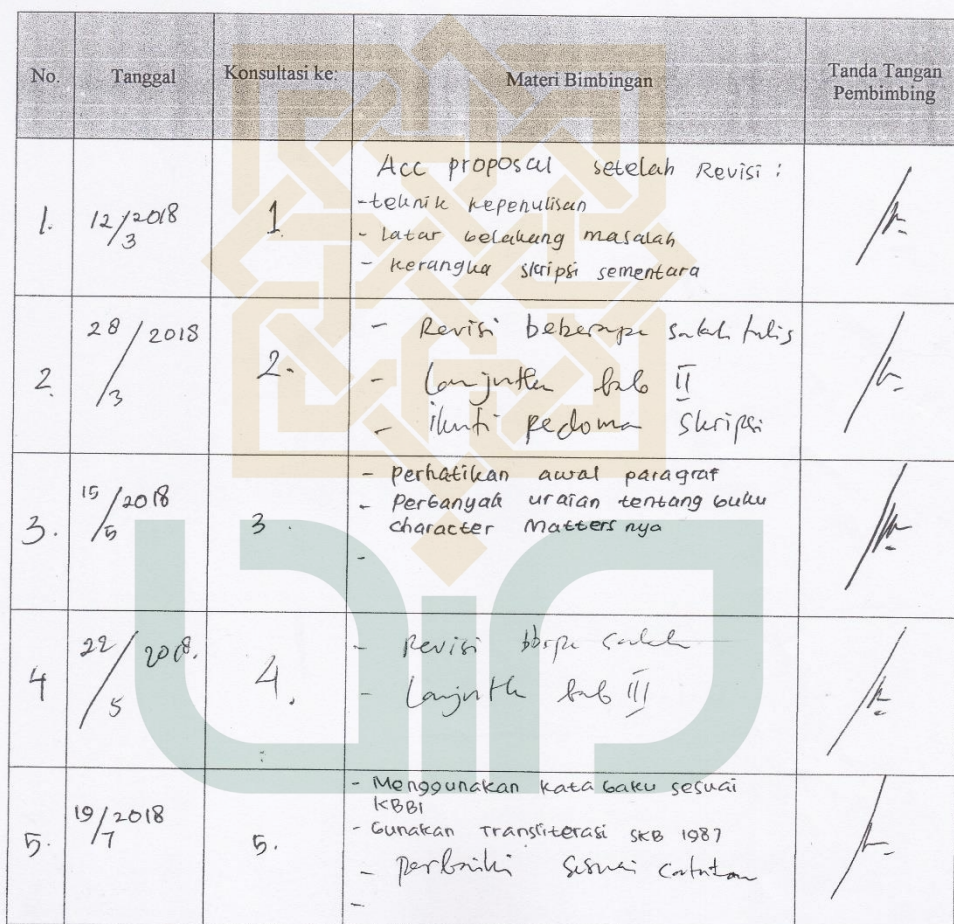 No.
Tanggal
Konsultasi ke:
Materi Bimbingan
Tanda Tangan
Pembimbing
1.
12/2018
3
1
Acc proposal setelah Revisi :
- teknik kepenulisan
- latar belakang masalah
- kerangka skripsi sementara
2.
28 / 2018
3
2.
- Revisi beberapa salah tulis
- Lanjutka bab II
- ikuti pedoma skripsi
3.
15 / 2018
5
3.
- perhatikan awal paragraf
- perbanyak uraian tentang buku
character Matters nya
-
4
22 / 2018.
5
4.
- Revisi bbrpa salah
- Lanjutk bab III
5.
19 / 2018
7
5.
- Menggunakan kata baku sesuai
KBBI
- Gunakan Transliterasi SKB 1987
- perbaiki sesuai catatan
-